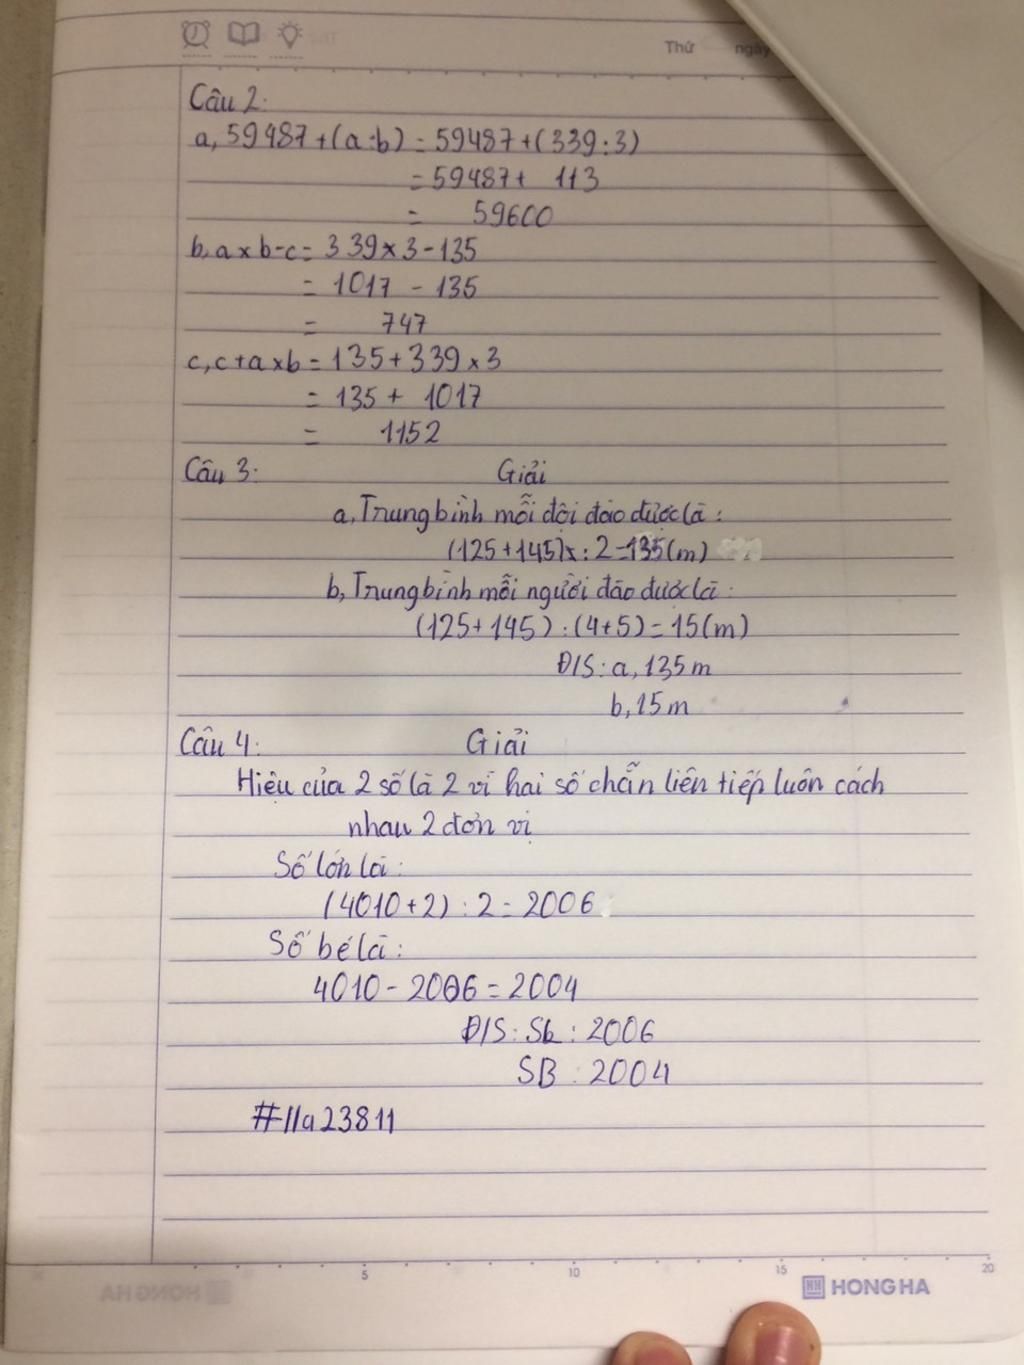 Thứ ngày
Câu 2:
a, 59487+(a:b) = 59487+(339:3)
= 59487+ 113
= 59600
b, a x b - c = 339 x 3 - 135
= 1017 - 135
= 747
c, c + a x b = 135 + 339 x 3
= 135 + 1017
= 1152
Câu 3: Giải
a, Trung bình mỗi đội đào được là:
(125+145) : 2 = 135 (m)
b, Trung bình mỗi người đào được là:
(125+145) : (4+5) = 15 (m)
Đ/S: a, 135 m
b, 15 m
Câu 4: Giải
Hiệu của 2 số là 2 vì hai số chẵn liên tiếp luôn cách
nhau 2 đơn vị
Số lớn là:
(4010+2) : 2 = 2006
Số bé là:
4010 - 2006 = 2004
Đ/S: SL : 2006
SB : 2004
#lla23811
5 10 15 20
HONG HA